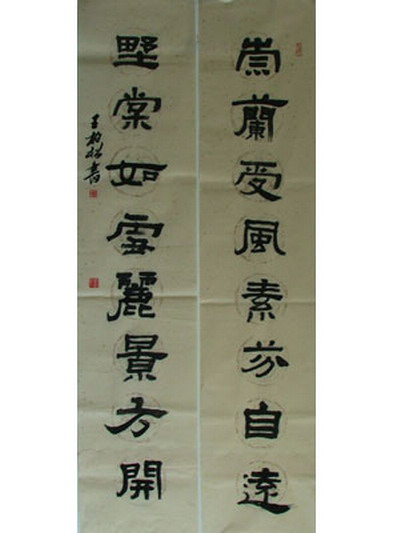 崇蘭受風素芬自遠
野棠如雪麗景方開
王 松書